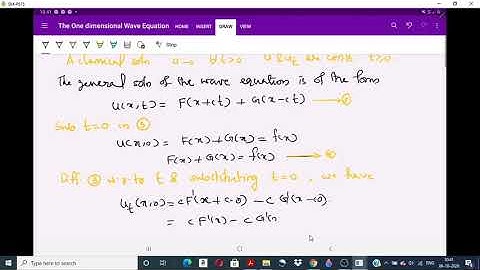 The One dimensional Wave Equation
HOME INSERT DRAW VIEW
Stop
A classical soln u→ ∀t>0 u & ut are conts t≥0
The general soln of the wave equation is of the form
u(x,t) = F(x+ct) + G(x-ct)
Sub t=0 in ⑤
u(x,0) = F(x)+G(x) = f(x)
F(x)+G(x) = f(x) → ⑥
Diff w.r.to t & substituting t=0, we have
ut(x,0) = cF'(x+c·0) - c G'(x-c0)
= cF'(x) - c G'(x
Type here to search
ENG
10:41
06-10-2020